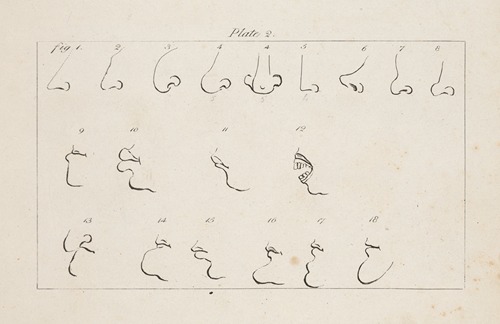 Plate 2.
fig 1. 2 3 4 4 5 6 7 8
9 10 11 12
13 14 15 16 17 18